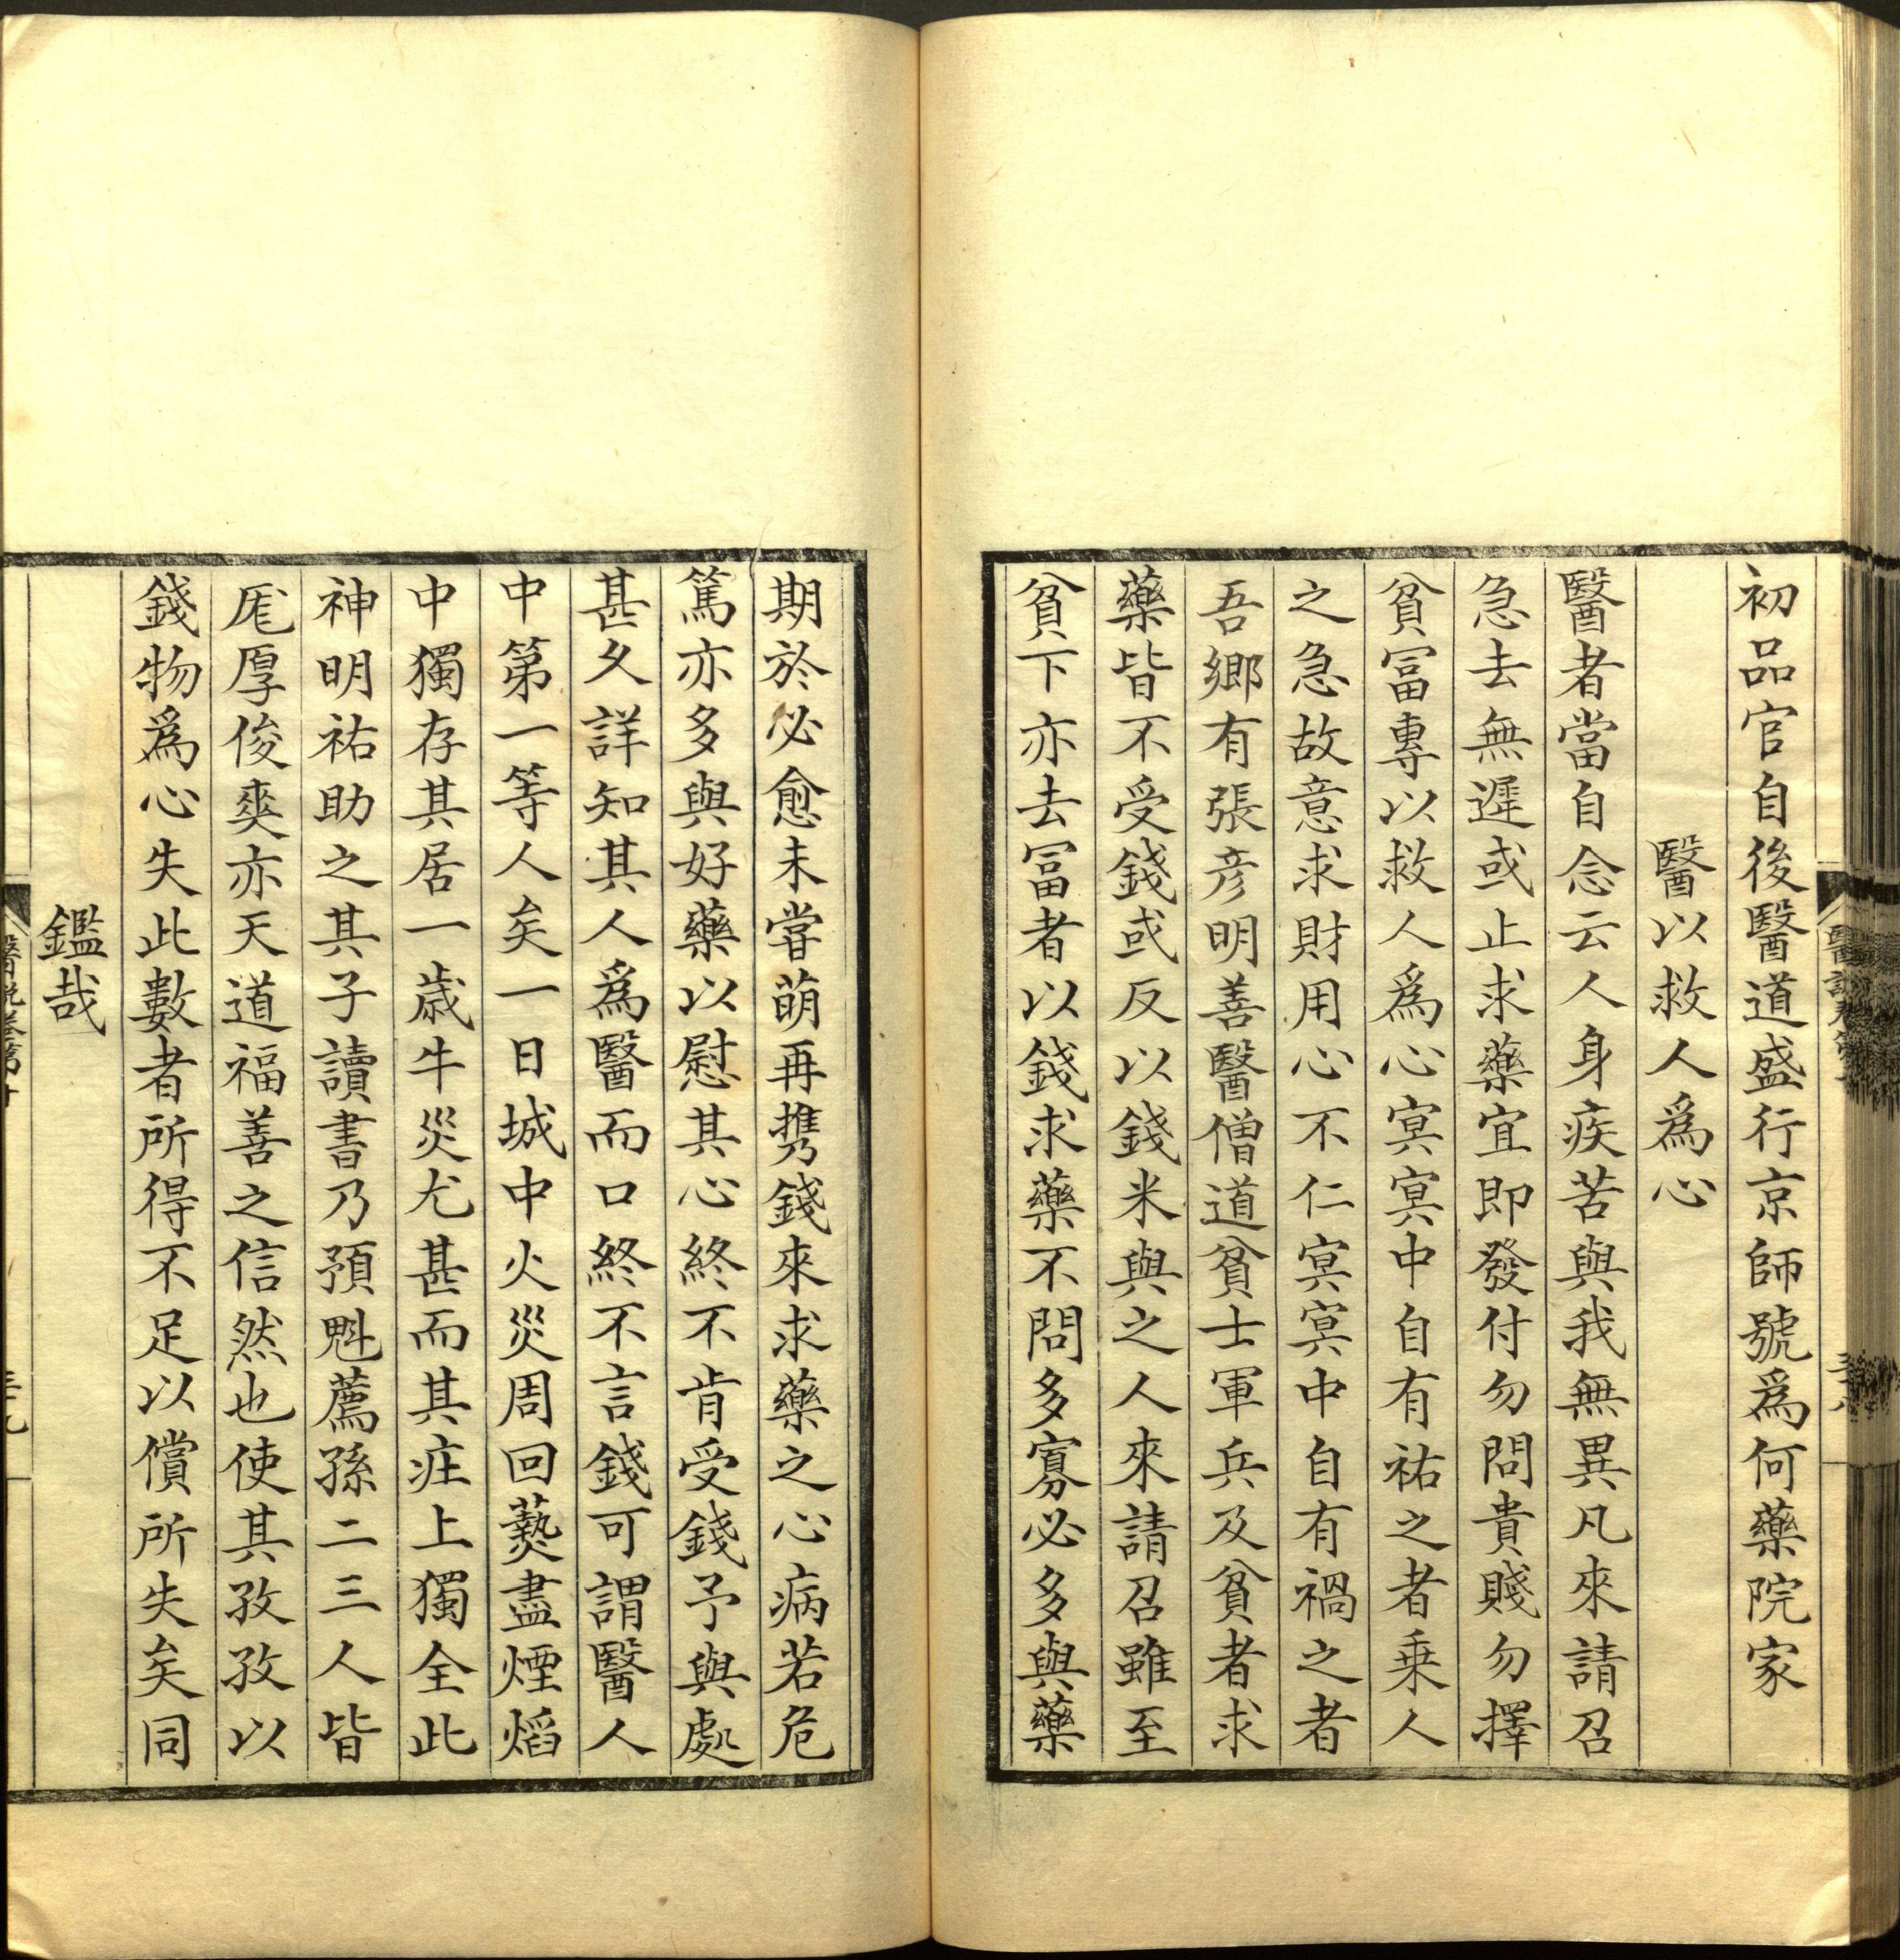 初品官自後醫道盛行京師號爲何藥院家
醫以救人爲心
醫者當自念云人身疾苦與我無異凡來請召
急去無遲或止求藥宜即發付勿問貴賤勿擇
貧冨專以救人爲心冥冥中自有祐之者乗人
之急故意求財用心不仁冥冥中自有禍之者
吾鄉有張彦明善醫僧道貧士軍兵及貧者求
藥皆不受錢或反以錢米與之人來請召雖至
貧下亦去冨者以錢求藥不問多寡必多與藥
期於必愈未甞萌再携錢來求藥之心病若危
篤亦多與好藥以慰其心終不肯受錢予與處
甚久詳知其人爲醫而口終不言錢可謂醫人
中第一等人矣一日城中火災周回爇盡煙熖
中獨存其居一歲牛災尤甚而其庄上獨全此
神明祐助之其子讀書乃預魁薦孫二三人皆
厖厚俊爽亦天道福善之信然也使其孜孜以
錢物爲心失此數者所得不足以償所失矣同
鑑哉
醫說卷第十
三十九